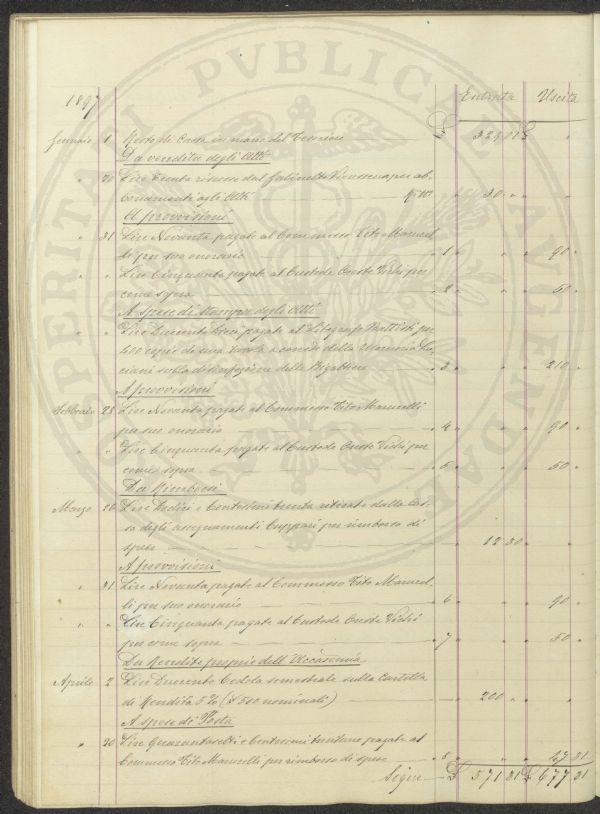 PROSPERITATI PUBLICAE AUGENDAE
Entrata Uscita
1897
Gennaio 1 Resto di Cassa in mano del Tesoriere £ 329.01 £ "
Da vendita degli Atti
" 20 Lire Trenta riscosse dal Gabinetto Vieusseux per ab-
bonamenti agli Atti " 30 " " "
A provvisioni
" 31 Lire Novanta pagate al Commesso Tito Marucel-
li per suo onorario " 1 " " " 90 "
" " Lire Cinquanta pagate al Custode Oreste Vichi per
come sopra " 2 " " " 50 "
A spese di stampa degli Atti
" " Lire Duecento dieci pagate al Litografo Battisti per
400 copie di una tavola a corredo della Memoria
sulla disinfezione delle Bigattiere " 3 " " " 210 "
A provvisioni
Febbraio 28 Lire Novanta pagate al Commesso Tito Marucelli
per suo onorario " 4 " " " 90 "
" " Lire Cinquanta pagate al Custode Oreste Vichi per
come sopra " 5 " " " 50 "
Da Rimborsi
Marzo 26 Lire Dodici e Centesimi trenta ritirate dalla Cas-
sa degli assegnamenti Cuppari per rimborso di
spese " 12 30 " "
A provvisioni
" 31 Lire Novanta pagate al Commesso Tito Marucel-
li per suo onorario " 6 " " " 90 "
" " Lire Cinquanta pagate al Custode Oreste Vichi
per come sopra " 7 " " " 50 "
Da Rendite proprie dell'Accademia
Aprile 2 Lire Duecento Cedola semestrale sulla Cartella
di Rendita 5% (£ 500 nominali) " 200 " " "
A spese di Posta
" 20 Lire Quarantasette e Centesimi trentuno pagate al
Commesso Tito Marucelli per rimborso di spese " 8 " " " 47 31
Segue £ 571 31 £ 677 31